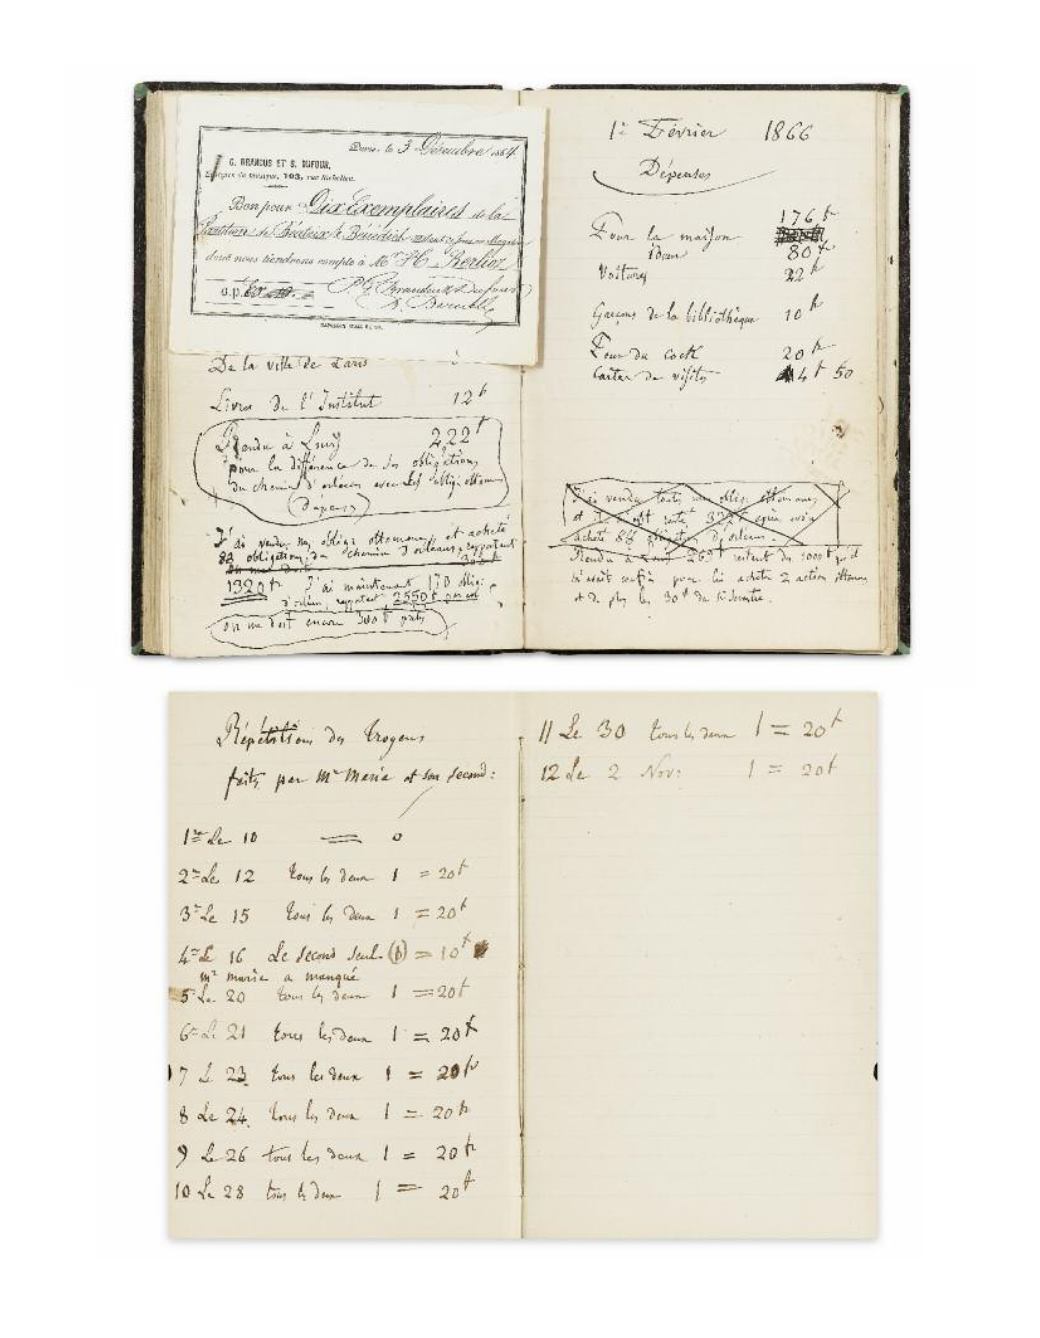 Paris, le 3 Décembre 1864
G. BRANDUS ET S. DUFOUR,
103, rue Richelieu.
Bon pour Dix Exemplaires de la
Partition de Béatrix & Bénédict
dont nous tiendrons compte à Mr H. Berlioz
De la ville de Paris
Livres de l'Institut 12f
Rendu à Louis 222f
pour la différence de ses obligations
du chemin d'orléans avec les oblig: ottomanes
(Dépenses)
J'ai vendu mes obligs ottomanes, et acheté
88 obligations du chemin d'orleans, rapportant
on me doit
1320 fr J'ai maintenant 170 oblig:
d'orléans, rapportant 2550f par an
on me doit encore 300f
1er Février 1866
Dépenses
176f
Pour la maison
idem 80f
Voitures 22f
Garçons de la bibliothèque 10f
20fr
Cartes de visites 4f 50
J'ai vendu toutes mes oblig. ottomanes
et il m'est resté après avoir
acheté 88 obligations d'orléans.
Rendu à Louis 269f restant des 1000f qu'il
m'avait confiés pour lui acheter 2 actions ottomanes
et de plus les 30f du semestre.
Répétitions des Troyens
faites par Mr Marie et son second:
1re Le 10 = 0
2e Le 12 tous les deux 1 = 20f
3e Le 15 tous les deux 1 = 20f
4e Le 16 Le second seul = 10f
Mr marie a manqué
5e Le 20 tous les deux 1 = 20f
6e Le 21 tous les deux 1 = 20f
7 Le 23 tous les deux 1 = 20fr
8 Le 24 tous les deux 1 = 20fr
9 Le 26 tous les deux 1 = 20fr
10 Le 28 tous les deux 1 = 20f
11 Le 30 tous les deux 1 = 20f
12 Le 2 Nov: 1 = 20f